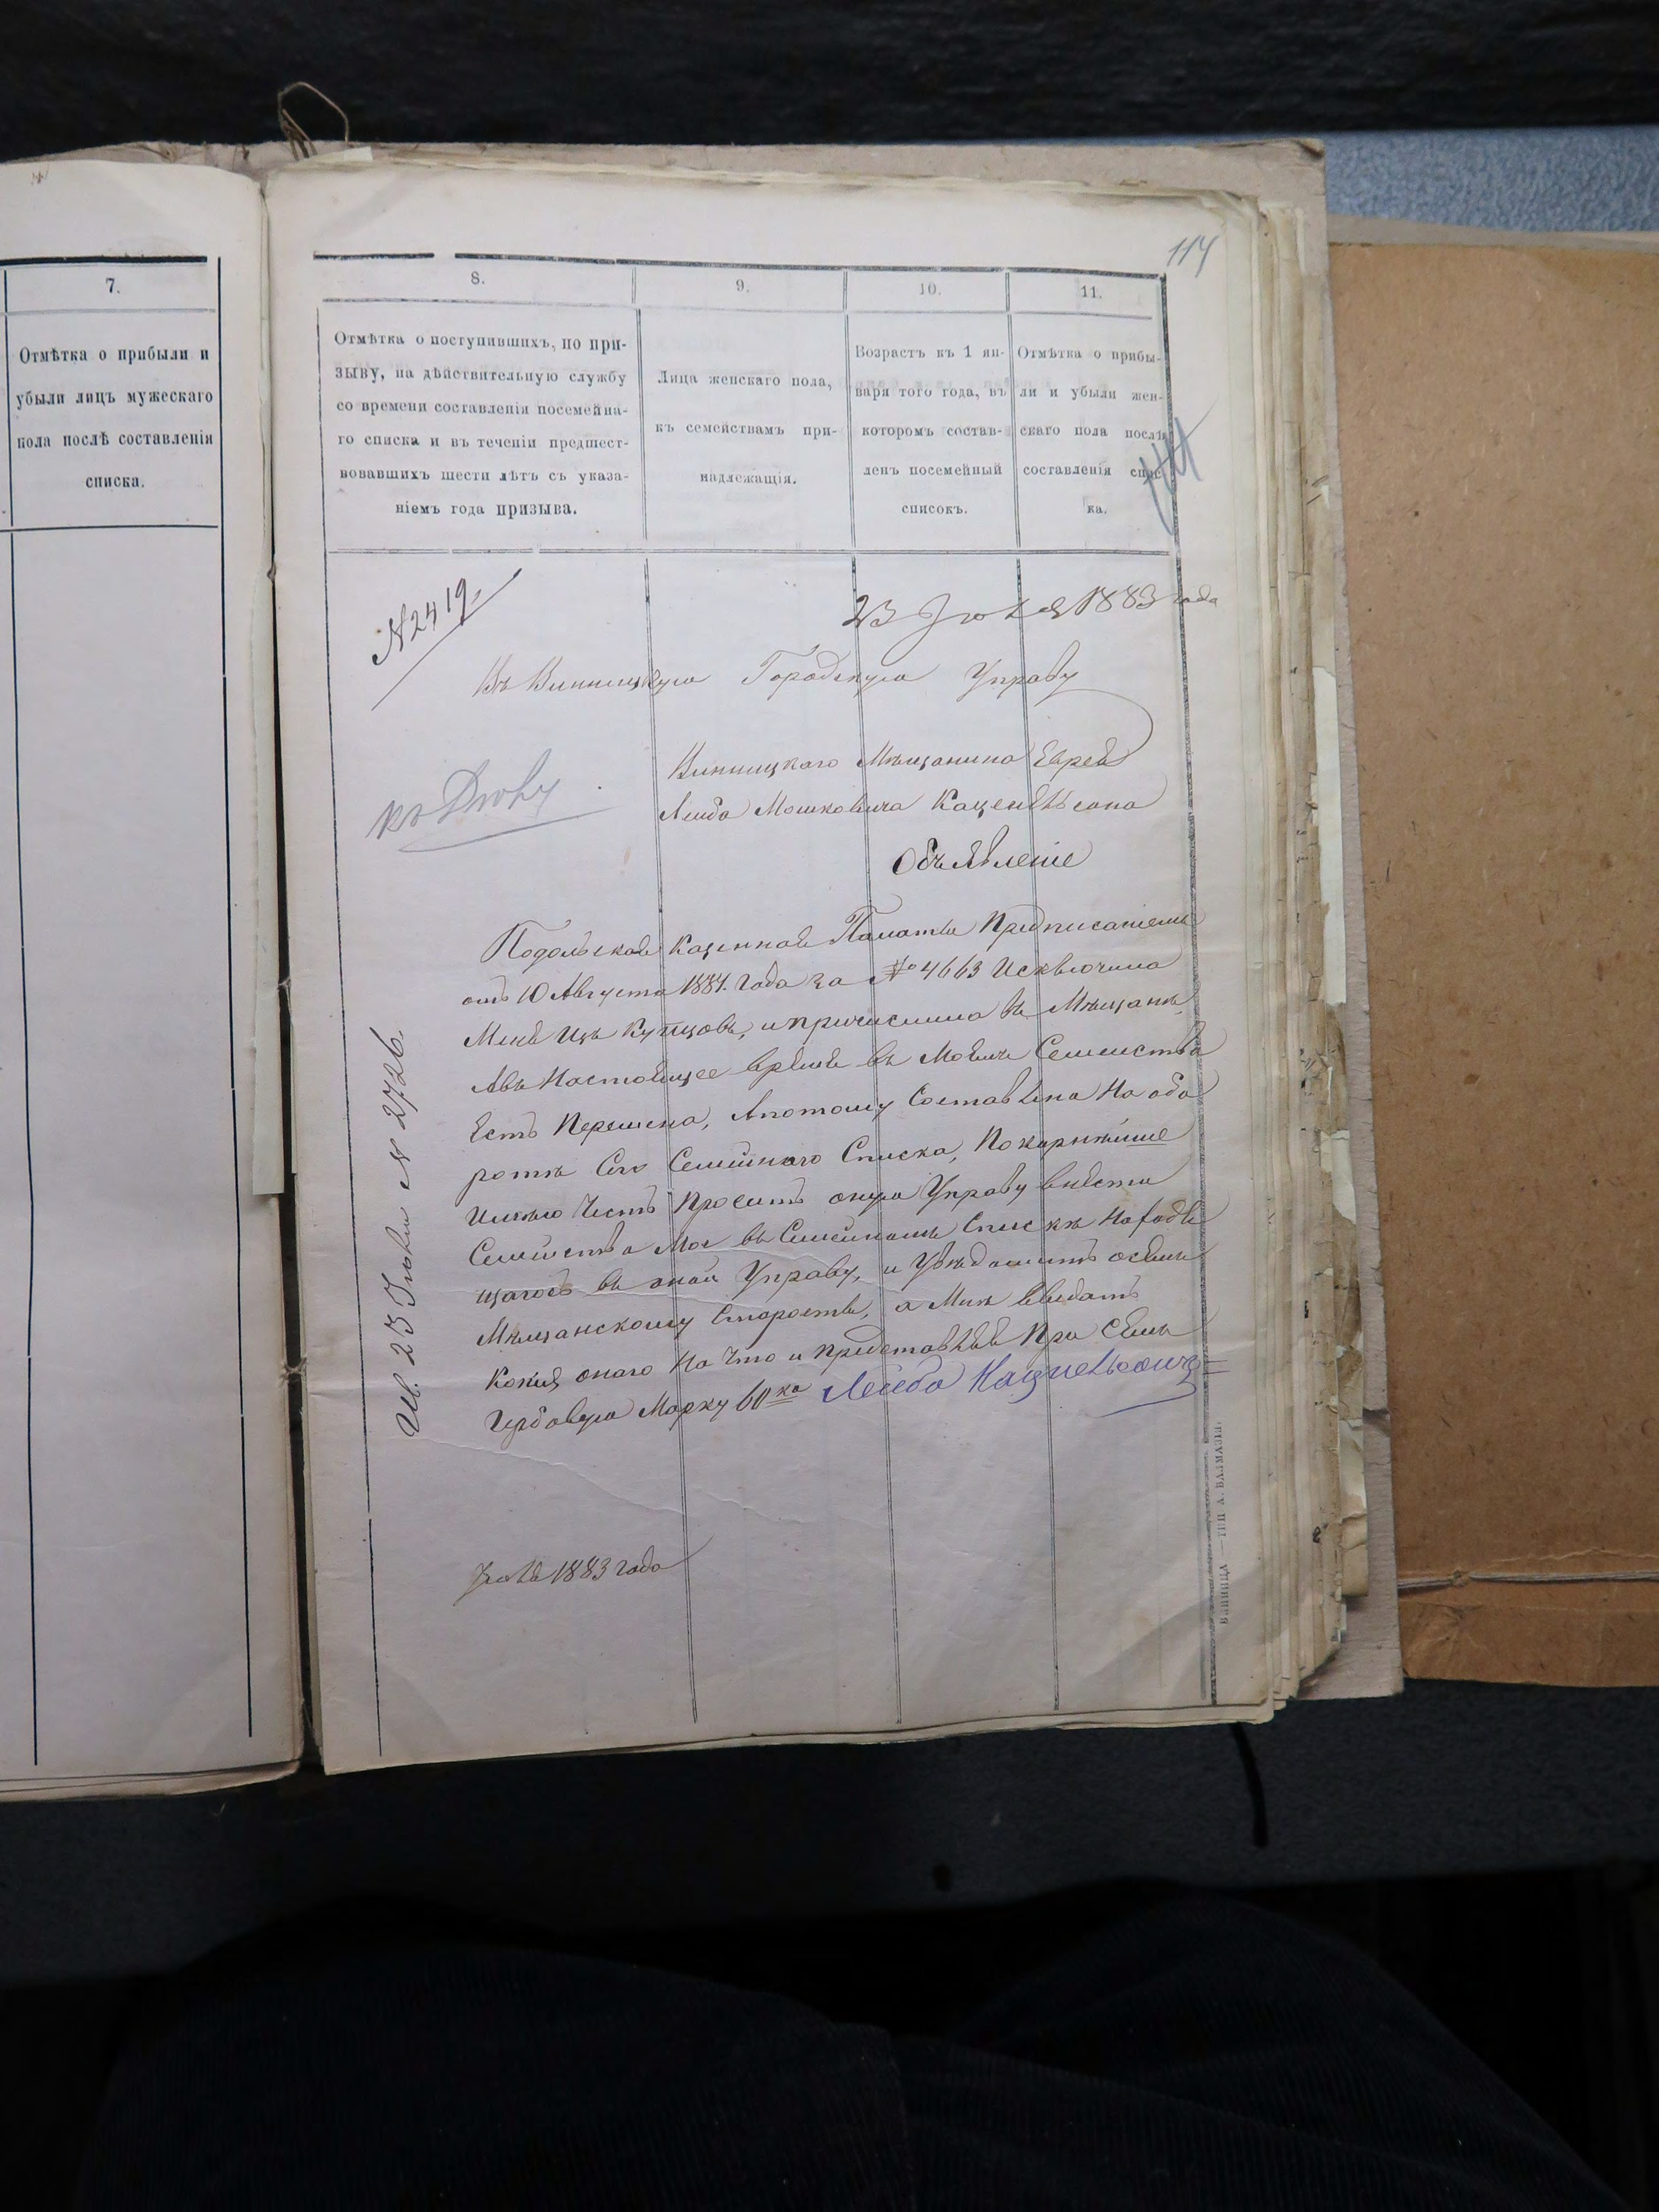 114
7.
Отмѣтка о прибыли и
убыли лицъ мужескаго
пола послѣ составленія
списка.
8.
Отмѣтка о поступившихъ, по при-
зыву, на дѣйствительную службу
со времени составленія посемейна-
го списка и въ теченіи предшест-
вовавшихъ шести лѣтъ съ указа-
ніемъ года призыва.
9.
Лица женскаго пола,
къ семействамъ при-
надлежащія.
10.
Возрастъ къ 1 ян-
варя того года, въ
которомъ состав-
ленъ посемейный
списокъ.
11.
Отмѣтка о прибы-
ли и убыли жен-
скаго пола послѣ
составленія спис-
ка.
№ 2419.
23 Іюля 1883 года
Въ Винницкую Городскую Управу
къ дѣлу
Винницкаго Мѣщанина Еврея
Лейба Мошковича Каценельсона
Объявленіе
Подольская Казенная Палата Предписаніемъ
отъ 10 Августа 1881. года за № 4663 Исключила
Меня Изъ Купцовъ, и причислила въ Мѣщане,
Авъ Настоящее время въ Моемъ Семействѣ
Есть Перемена, Апотому Составлена На обо
ротѣ Сего Семейнаго Списка, Покорнѣйше
Имѣю Честь Просить оную Управу внести
Семейства Мое въ Семейномъ Спискѣ Находя
щагось въ оной Управу, и Увѣдомить освемъ
Мѣщанскому Старосте, а Мнѣ выдать
Копія онаго На Что и представляя При Семъ
Гербовую Марку 60 ка Лейба Кацнельсонъ
Іюля 1883 года
Ив. 23 Іюля № 2726.
ВИННИЦА — ТИП А. ВАЛМАЗЬ.